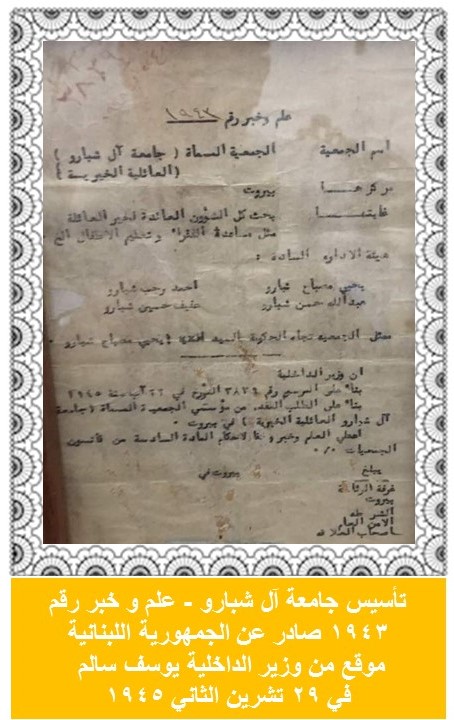 علم وخبر رقم ١٩٤٣
اسم الجمعية الجمعية المسماة ( جامعة آل شبارو )
( العائلية الخيرية )
مركزهـــا بيروت
غايتهـــا بحث كل الشؤون العائدة لخير العائلة
مثل مساعدة الفقراء وتعليم الاطفال الخ
هيئة الادارة السادة :
يحيى مصباح شبارو احمد رجب شبارو
عبدالله حسن شبارو عفيف حسين شبارو
ممثل الجمعية تجاه الحكومة السيد يحيى مصباح شبارو .
ان وزير الداخلية
بناء على المرسوم رقم المؤرخ في ٢٢ آب سنة ١٩٤٥
بناء على الطلب المقدم من مؤسسي الجمعية المسماة ( جامعة
آل شبارو العائلية الخيرية ) في بيروت .
اعطي العلم والخبر وفقا لاحكام المادة السادسة من قانون
الجمعيات
يبلغ بيروت في
غرفة الرئاسة
بيروت
الشرطة
الامن العام
اصحاب العلاقة
تأسيس جامعة آل شبارو - علم و خبر رقم
١٩٤٣ صادر عن الجمهورية اللبنانية
موقع من وزير الداخلية يوسف سالم
في ٢٩ تشرين الثاني ١٩٤٥